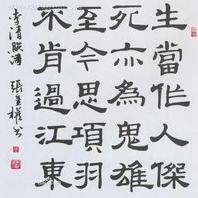 生當作人傑
死亦為鬼雄
至今思項羽
不肯過江東
李清照詩